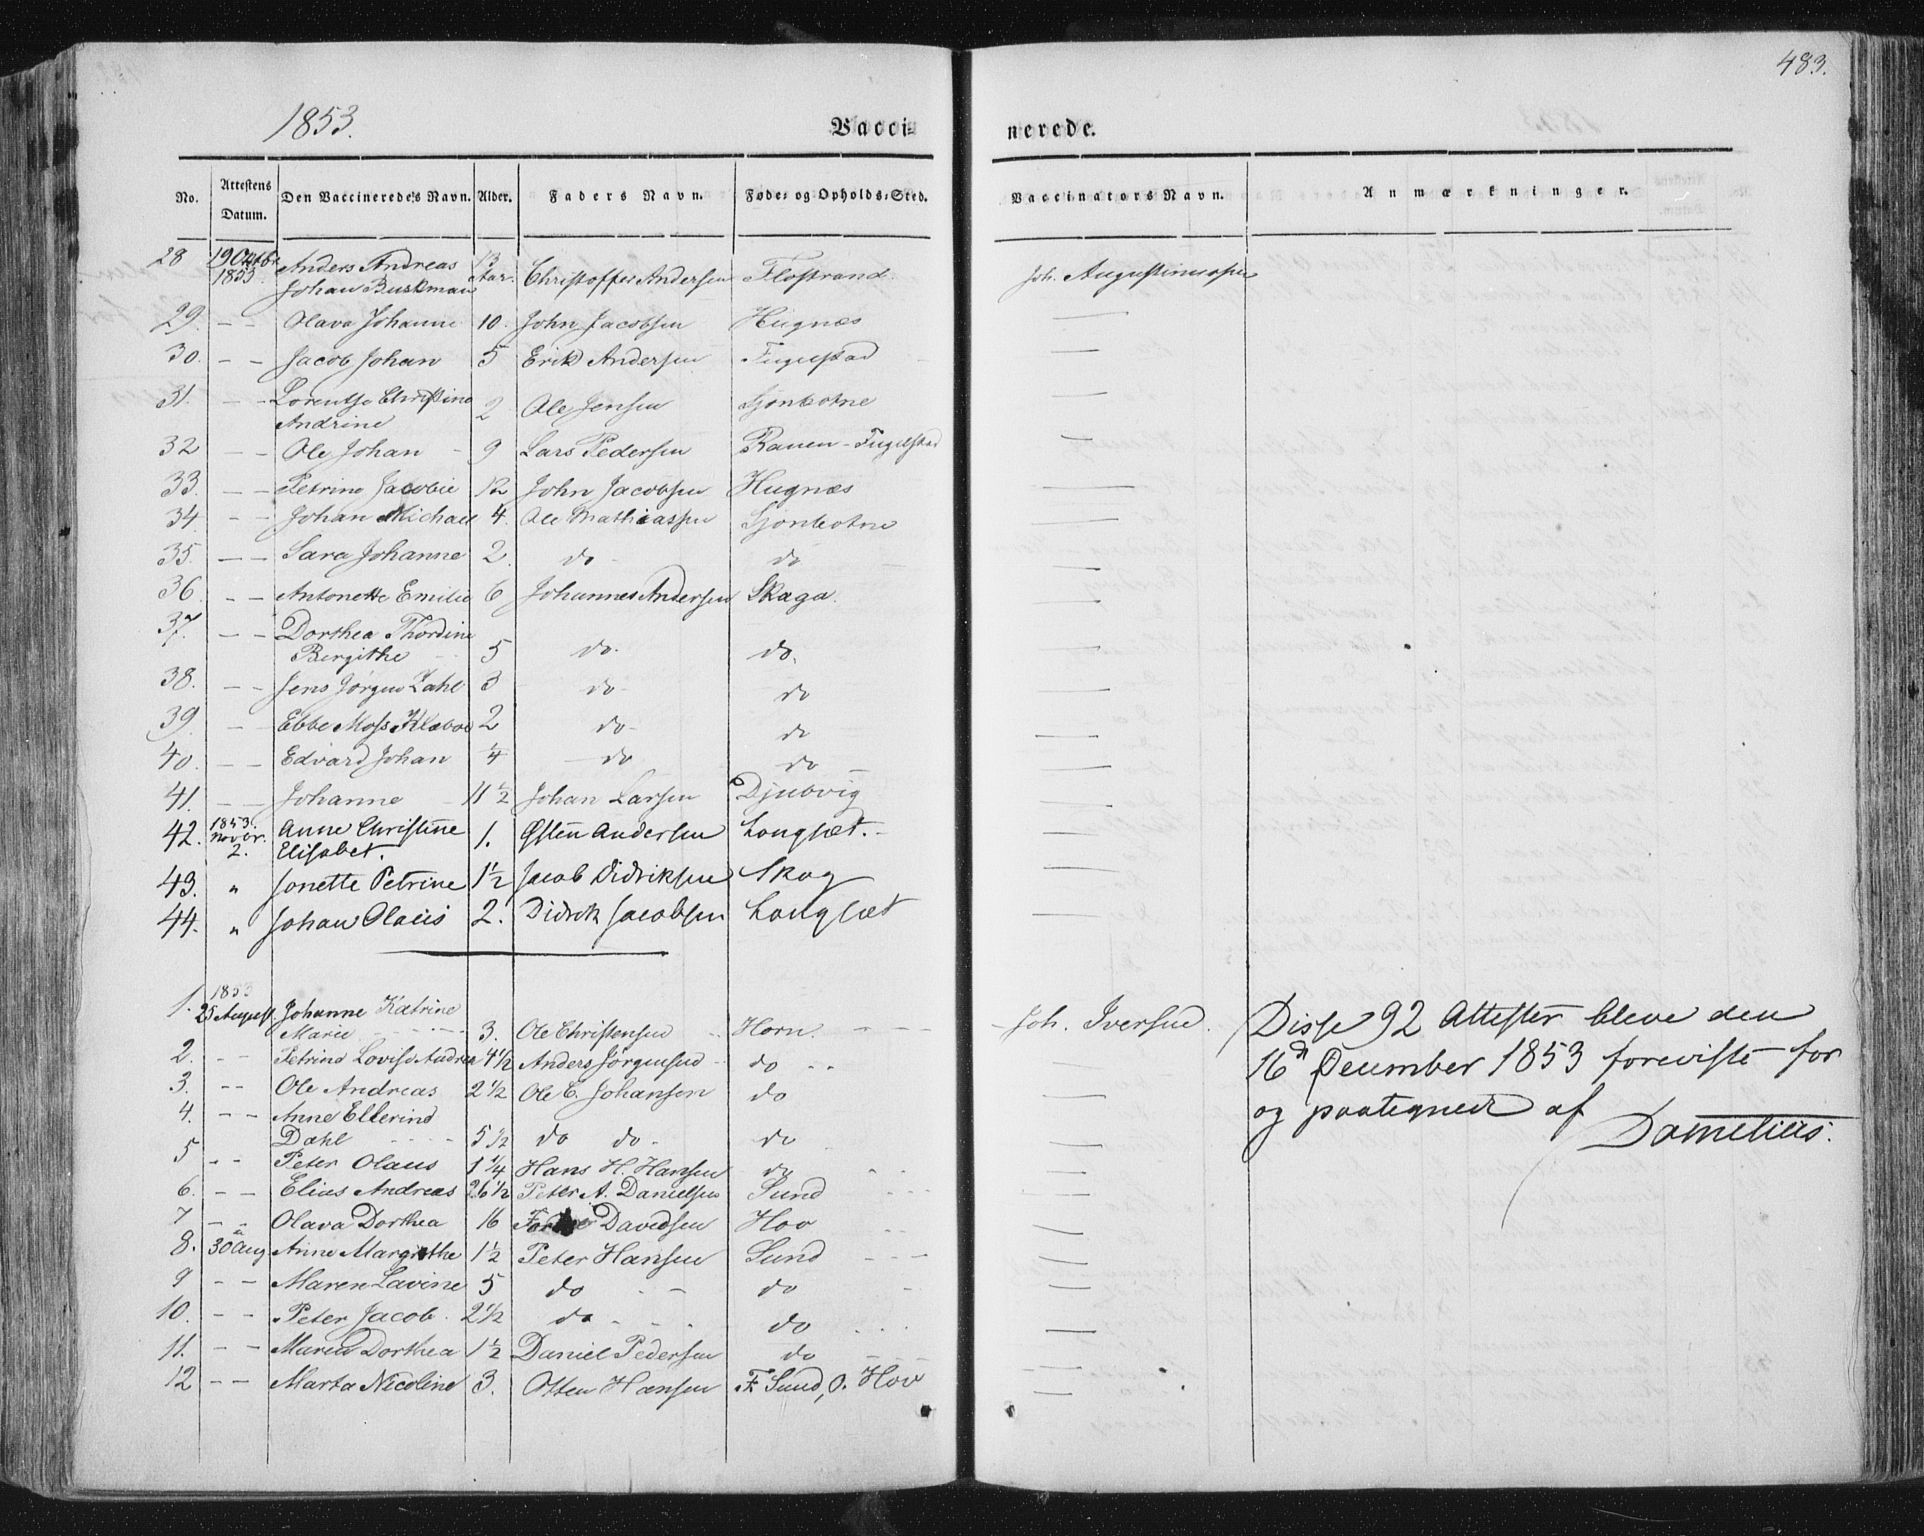 483.
1853. Vacci- nerede.
No. Attestens Datum. Den Vaccineredes Navn. Alder. Faders Navn. Føde- og Opholds-Sted. Vaccinators Navn. Anmærkninger.
28 19 Octbr 1853 Anders Andreas 13 Aar. Christoffer Andersen Flostrand Joh. Augustinussen
Johan Buskman
29. — — Olava Johanne 10. John Jacobsen Hugnæs —
30. — — Jacob Johan 5 Erik Andersen Fugelstad —
31. — — Lorentse Christine 2 Ole Jensen Sjonbotne —
Andrine
32 — — Ole Johan - 9 Lars Pedersen Ranen - Fugelstad —
33. — — Petrine Jacobie 12 John Jacobsen Hugnæs —
34 — — Johan Michael 4. Ole Mathiassen Sjonbotne —
35. — — Sara Johanne 2. do do —
36. — — Antonette Emilie 6 Johannes Andersen Skaga. —
37. — — Dorthea Thordine
Bergithe 5 do. do. —
38. — — Jens Jørgen Zahl 3 do do —
39. — Ebbe Moss Klæboe 2 do do —
40. — — Edvard Johan ¼ do do —
41. — — Johanne 11 ½ Johan Larsen Djubvig —
42. 1853. Novbr. 2. Anne Christine 1. Østen Andersen Langset. —
Elisabet.
43. " Jonette Petrine 1½ Jacob Didriksen Skog —
44. " Johan Olaus 2. Didrik Jacobsen Langset —
1. 1853 25 August. Johanne Katrine
Marie 3. Ole Christensen Horn. Joh. Iversen. Disse 92 Attester bleve den
2. - - Petrine Lovise Andrea 4½ Anders Jørgensen do - - — 16d December 1853 foreviste for
3. - - Ole Andreas 2½ Ole C. Johansen do — og paategnede af
4. - - Anne Ellerine
Dahl 5½ do do do —
5 - - Peter Olaus 1¼ Hans H. Hansen do —
6. — — Elias Andreas 26½ Peter A. Danielsen Sund —
7 — — Olava Dorthea 16 Davidsen Hov —
8. 30 Aug Anne Margrethe 1½ Peter Hansen Sund —
9 — — Maren Lavine 5 do do —
10. — — Peter Jacob 2½ do do —
11. — — Maren Dorthea 1½ Daniel Pedersen do —
12 — — Marta Nicoline 3. Otten Hansen F. Sund, O. Hov —